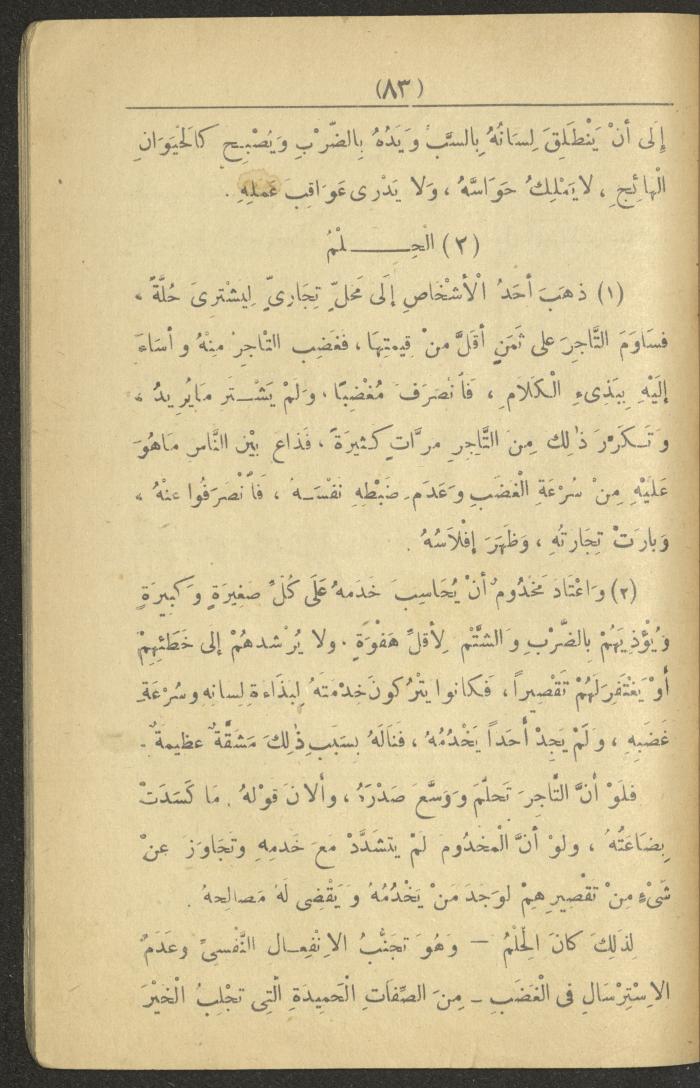 (٨٣)
إِلَى أنْ يَنْطَلِقَ لِسَانُهُ بِالسَّبِّ وَيَدُهُ بِالضَّرْبِ وَيُصْبِح كالْحَيَوَانِ
الْهائِجِ ، لا يَمْلِكُ حَوَاسَّهُ ، وَلا يَدْرى عَوَاقِبَ عَمَلِهِ .
(٢) الْحِـــلْمُ
(١) ذهَبَ أحَدُ الْأشْخَاصِ إلَى مَحَلٍّ تِجَارِيٍّ لِيَشْتَرِىَ حُلَّةً ،
فسَاوَمَ التَّاجِرَ على ثَمَنٍ أقَلَّ منْ قِيمتِهَا ، فغَضِب التَّاجِرُ مِنْهُ وأسَاءَ
إلَيْهِ بِبَذىءِ الْكَلَامِ ، فَانْصَرَفَ مُغْضِبًا ، ولَمْ يَشْـتَرِ مَايُرِيدُ ،
وَتَـكَرَّرَ ذٰلِك مِنَ التَّاجِرِ مرَّاتٍ كثِيرَةً ، فَذَاعَ بيْنَ النَّاسِ مَاهُوَ
عَلَيْهِ مِنْ سُرْعَةِ الْغضَبِ وَعَدَمِ ضَبْطِهِ نفْسَـهُ ، فَانْصَرَفُوا عنْهُ ،
وَبارَتْ تِجَارتُهُ ، وَظَهَرَ إفْلاَسُهُ .
(٢) وَاعْتَادَ مَخْدُومٌ أنْ يُحَاسِبَ خَدَمهُ عَلَى كُلِّ صَغِيرَةٍ وَكَبِيرَةٍ
وَيُؤْذِيَهُمْ بِالضَّرْبِ وَالشَّتْمِ لِأقلِّ هَفْوَةٍ . ولا يُرْشدهُمْ إلى خَطَئِهِمْ
أوْ يَغْتَفِرَ لَهُمْ تَقْصِيراً ، فَكانوا يتْرُكونَ خِدْمتَهُ لِبَذَاءَةِ لِسانِهِ وسُرْعَةِ
غَضَبِهِ ، ولَمْ يَجِدْ أَحَداً يَخْدُمُهُ ، فَنَالَهُ بسَبَبِ ذٰلِكَ مَشَقَّةٌ عظِيمةٌ .
فلَوْ أنَّ التَّاجِرَ تَحَلَّمَ وَوَسَّعَ صَدْرَهُ ، وألانَ قوْلهُ . مَا كَسَدَتْ
بِضَاعَتُهُ ، ولوْ أنَّ الْمخْدُومَ لَمْ يتشَدَّدْ مَعَ خَدمِهِ وتَجَاوَزَ عنْ
شَىْءٍ مِنْ تقْصِيرِهِمْ لوَجَدَ مَنْ يَخْدُمُهُ وَيَقْضِى لَهُ مَصَالِحهُ .
لِذلِكَ كانَ الْحِلْمُ — وَهُوَ تجَنُّبُ الانْفِعـال النَّفْسىِّ وعَدَمُ
الاسْتِرْسَالِ فى الْغَضَبِ — مِنَ الصِّفَاتِ الْحَمِيدَةِ الَّتِى تَجْلِبُ الْخَيْرَ